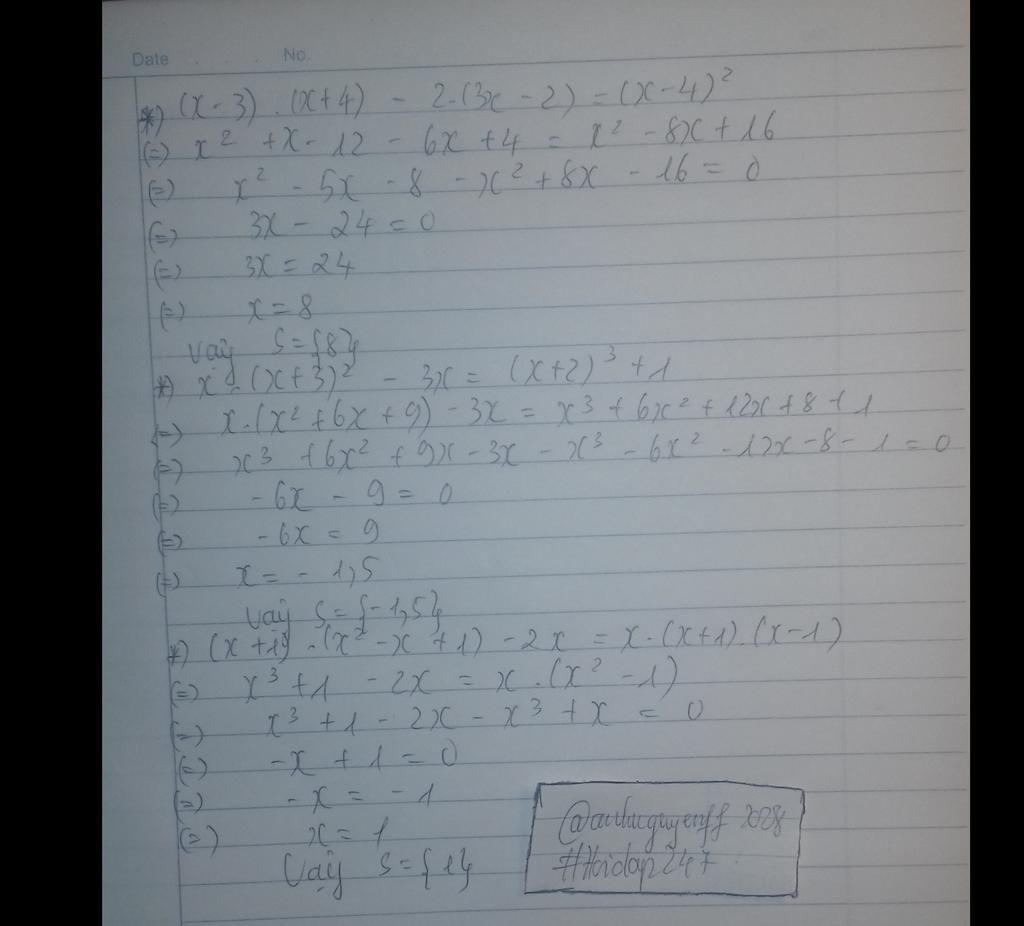 Date . . . . No.
*) (x-3).(x+4) - 2.(3x-2) = (x-4)²
(=) x² + x - 12 - 6x + 4 = x² - 8x + 16
(=) x² - 5x - 8 - x² + 8x - 16 = 0
(=) 3x - 24 = 0
(=) 3x = 24
(=) x = 8
Vậy S = {8}
*) x.(x+3)² - 3x = (x+2)³ + 1
(=) x.(x² + 6x + 9) - 3x = x³ + 6x² + 12x + 8 + 1
(=) x³ + 6x² + 9x - 3x - x³ - 6x² - 12x - 8 - 1 = 0
(=) -6x - 9 = 0
(=) -6x = 9
(=) x = -1,5
Vậy S = {-1,5}
*) (x+1).(x² - x + 1) - 2x = x.(x+1).(x-1)
(=) x³ + 1 - 2x = x.(x² - 1)
(=) x³ + 1 - 2x - x³ + x = 0
(=) -x + 1 = 0
(=) -x = -1
(=) x = 1
Vậy S = {1}
#Hoidap247